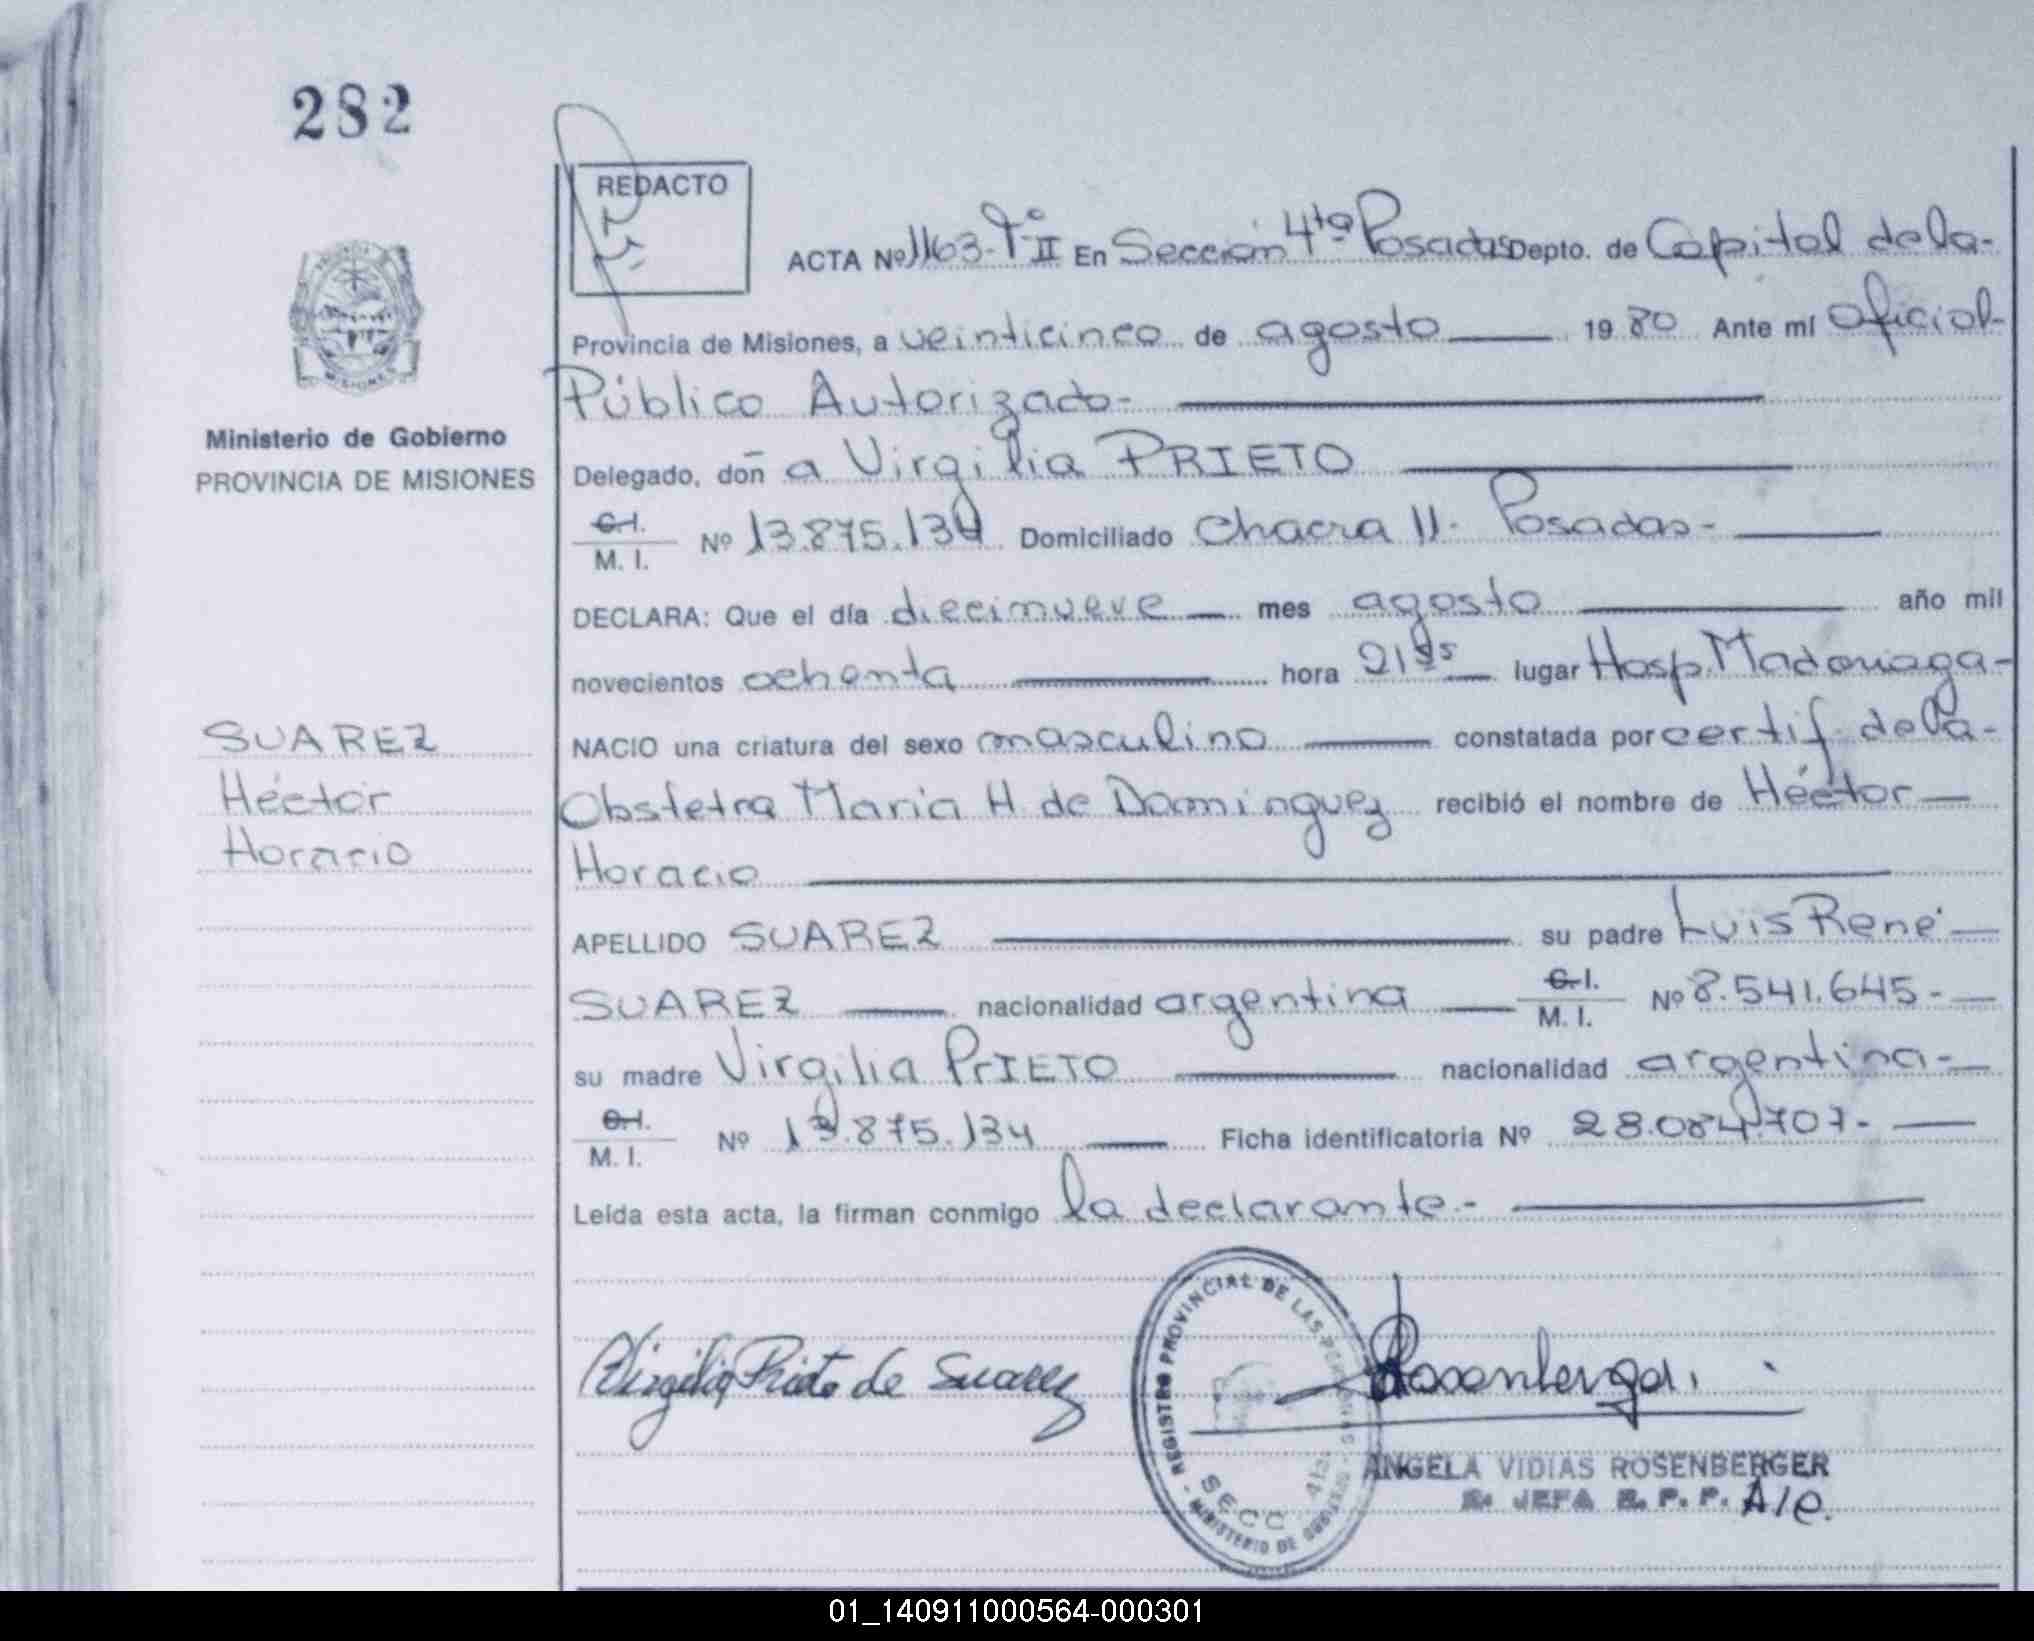 282
REDACTO
ACTA Nº 1163-Tº II En Sección 4ta Posadas Depto. de Capital de la-
Provincia de Misiones, a veinticinco de agosto 1980 Ante mí Oficial-
Público Autorizado-
Ministerio de Gobierno
PROVINCIA DE MISIONES
Delegado, don̄ a Virgilia PRIETO
C.I.
M. I. Nº 13.875.134 Domiciliado Chacra 11- Posadas-
DECLARA: Que el día diecinueve mes agosto año mil
novecientos ochenta hora 21 hs lugar Hosp. Madariaga-
SUAREZ
Héctor
Horacio
NACIO una criatura del sexo masculino constatada por certif. de la-
Obstetra Maria H. de Dominguez recibió el nombre de Héctor
Horacio
APELLIDO SUAREZ su padre Luis René
SUAREZ nacionalidad argentina C.I. M. I. Nº 8.541.645-
su madre Virgilia PrIETO nacionalidad argentina-
C.I.
M. I. Nº 13.875.134 Ficha identificatoria Nº 28.084.707-
Leída esta acta, la firman conmigo la declarante-
Virgilia Prieto de Suarez
REGISTRO PROVINCIAL DE LAS PERSONAS
SECC. 4ta.
MINISTERIO DE GOBIERNO
Rosenberger
ANGELA VIDIAS ROSENBERGER
JEFA R. P. P. A/c.
01_140911000564-000301